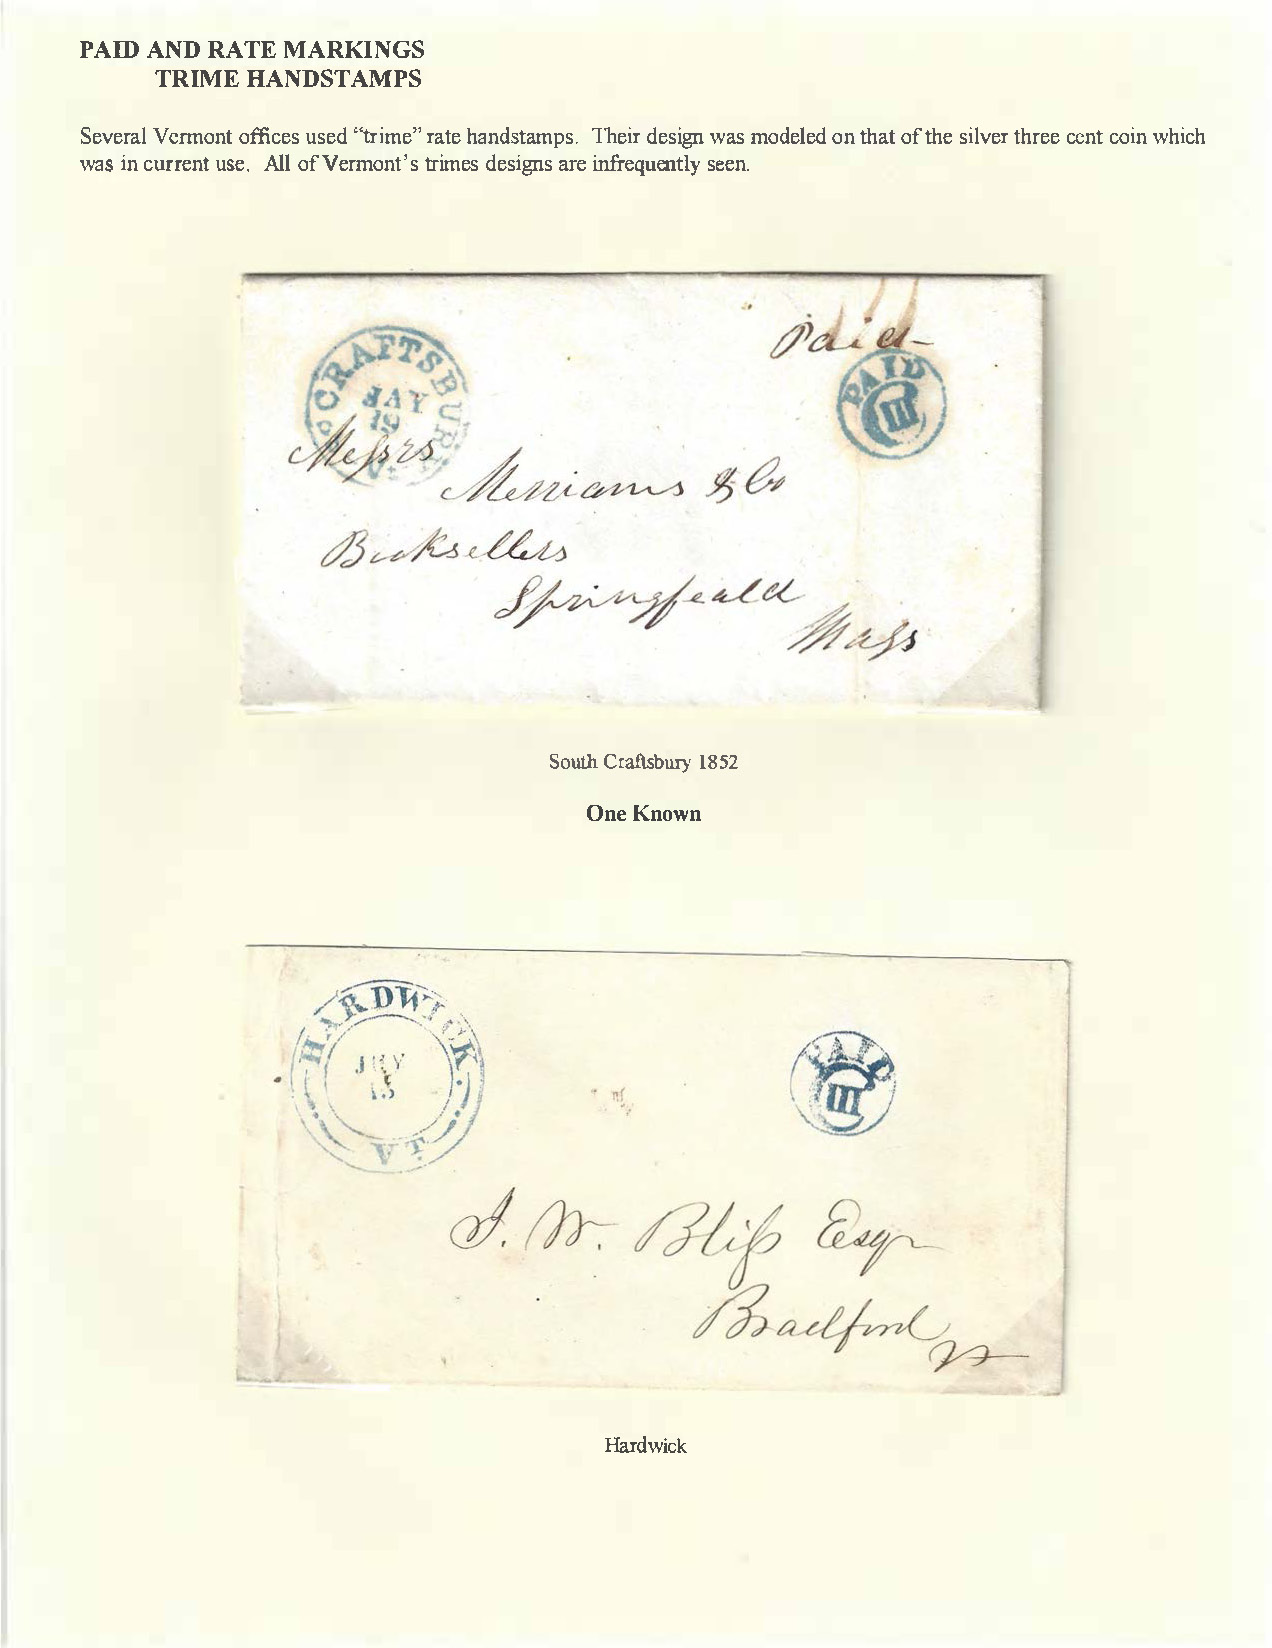 PAID AND RATE MARKINGS
TRIME HANDSTAMPS
Several Vermont offices used “trime” rate handstamps. Their design was modeled on that of the silver three cent coin which
was in current use. All of Vermont’s trimes designs are infrequently seen.
Paid
CRAFTSBURY
19
PAID
III
Messrs
Merriams & Co
Booksellers
Springfeald
Mass
South Craftsbury 1852
One Known
HARDWICK.
15
VT.
PAID
III
J. W. Bliss Esqr
Bradford
Vt
Hardwick